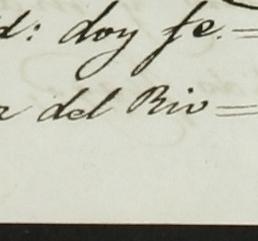 d: doy fe.=
r del Rio=